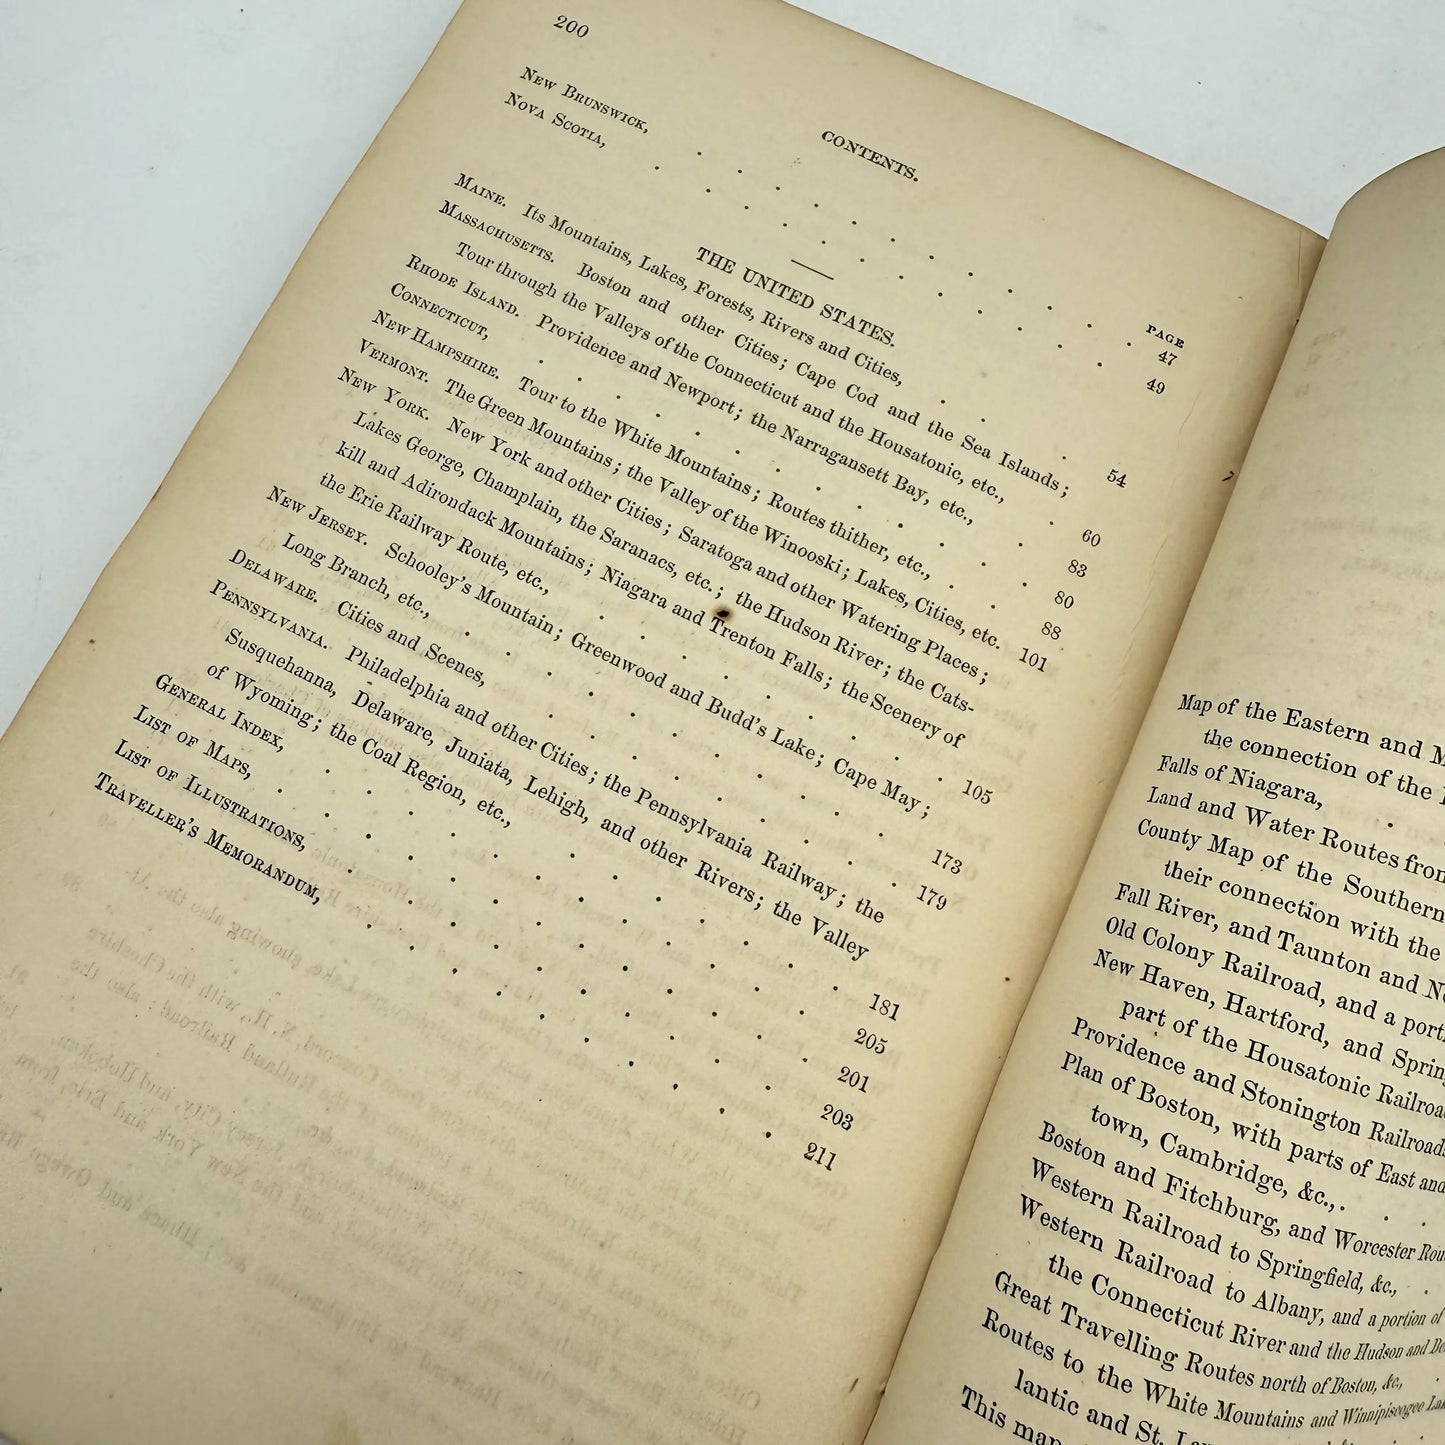 200
CONTENTS.
PAGE
NEW BRUNSWICK, . . . . . . . . . . . . 47
NOVA SCOTIA, . . . . . . . . . . . . 49
THE UNITED STATES.
MAINE. Its Mountains, Lakes, Forests, Rivers and Cities, . . . 54
MASSACHUSETTS. Boston and other Cities; Cape Cod and the Sea Islands;
Tour through the Valleys of the Connecticut and the Housatonic, etc., . 60
RHODE ISLAND. Providence and Newport; the Narragansett Bay, etc., . . 83
CONNECTICUT, . . . . . . . . . . . . 80
NEW HAMPSHIRE. Tour to the White Mountains; Routes thither, etc., . . 88
VERMONT. The Green Mountains; the Valley of the Winooski; Lakes, Cities, etc. 101
NEW YORK. New York and other Cities; Saratoga and other Watering Places;
Lakes George, Champlain, the Saranacs, etc.; the Hudson River; the Cats-
kill and Adirondack Mountains; Niagara and Trenton Falls; the Scenery of
the Erie Railway Route, etc., . . . . . . . . . 105
NEW JERSEY. Schooley's Mountain; Greenwood and Budd's Lake; Cape May;
Long Branch, etc., . . . . . . . . . . . 173
DELAWARE. Cities and Scenes, . . . . . . . . . 179
PENNSYLVANIA. Philadelphia and other Cities; the Pennsylvania Railway; the
Susquehanna, Delaware, Juniata, Lehigh, and other Rivers; the Valley
of Wyoming; the Coal Region, etc., . . . . . . . . 181
GENERAL INDEX, . . . . . . . . . . . . 205
LIST OF MAPS, . . . . . . . . . . . . 201
LIST OF ILLUSTRATIONS, . . . . . . . . . . . 203
TRAVELLER'S MEMORANDUM, . . . . . . . . . . 211
Map of the Eastern and
the connection of the
Falls of Niagara, .
Land and Water Routes from
County Map of the Southern
their connection with the
Fall River, and Taunton and
Old Colony Railroad, and a
New Haven, Hartford, and
part of the Housatonic
Providence and Stonington
Plan of Boston, with parts of East and
town, Cambridge, &c., . . .
Boston and Fitchburg, and Worcester
Western Railroad to Springfield, &c., .
Western Railroad to Albany, and a portion of
the Connecticut River and the Hudson and
Great Travelling Routes north of Boston, &c., .
Routes to the White Mountains and Winnipiseogee
lantic and St.
This map